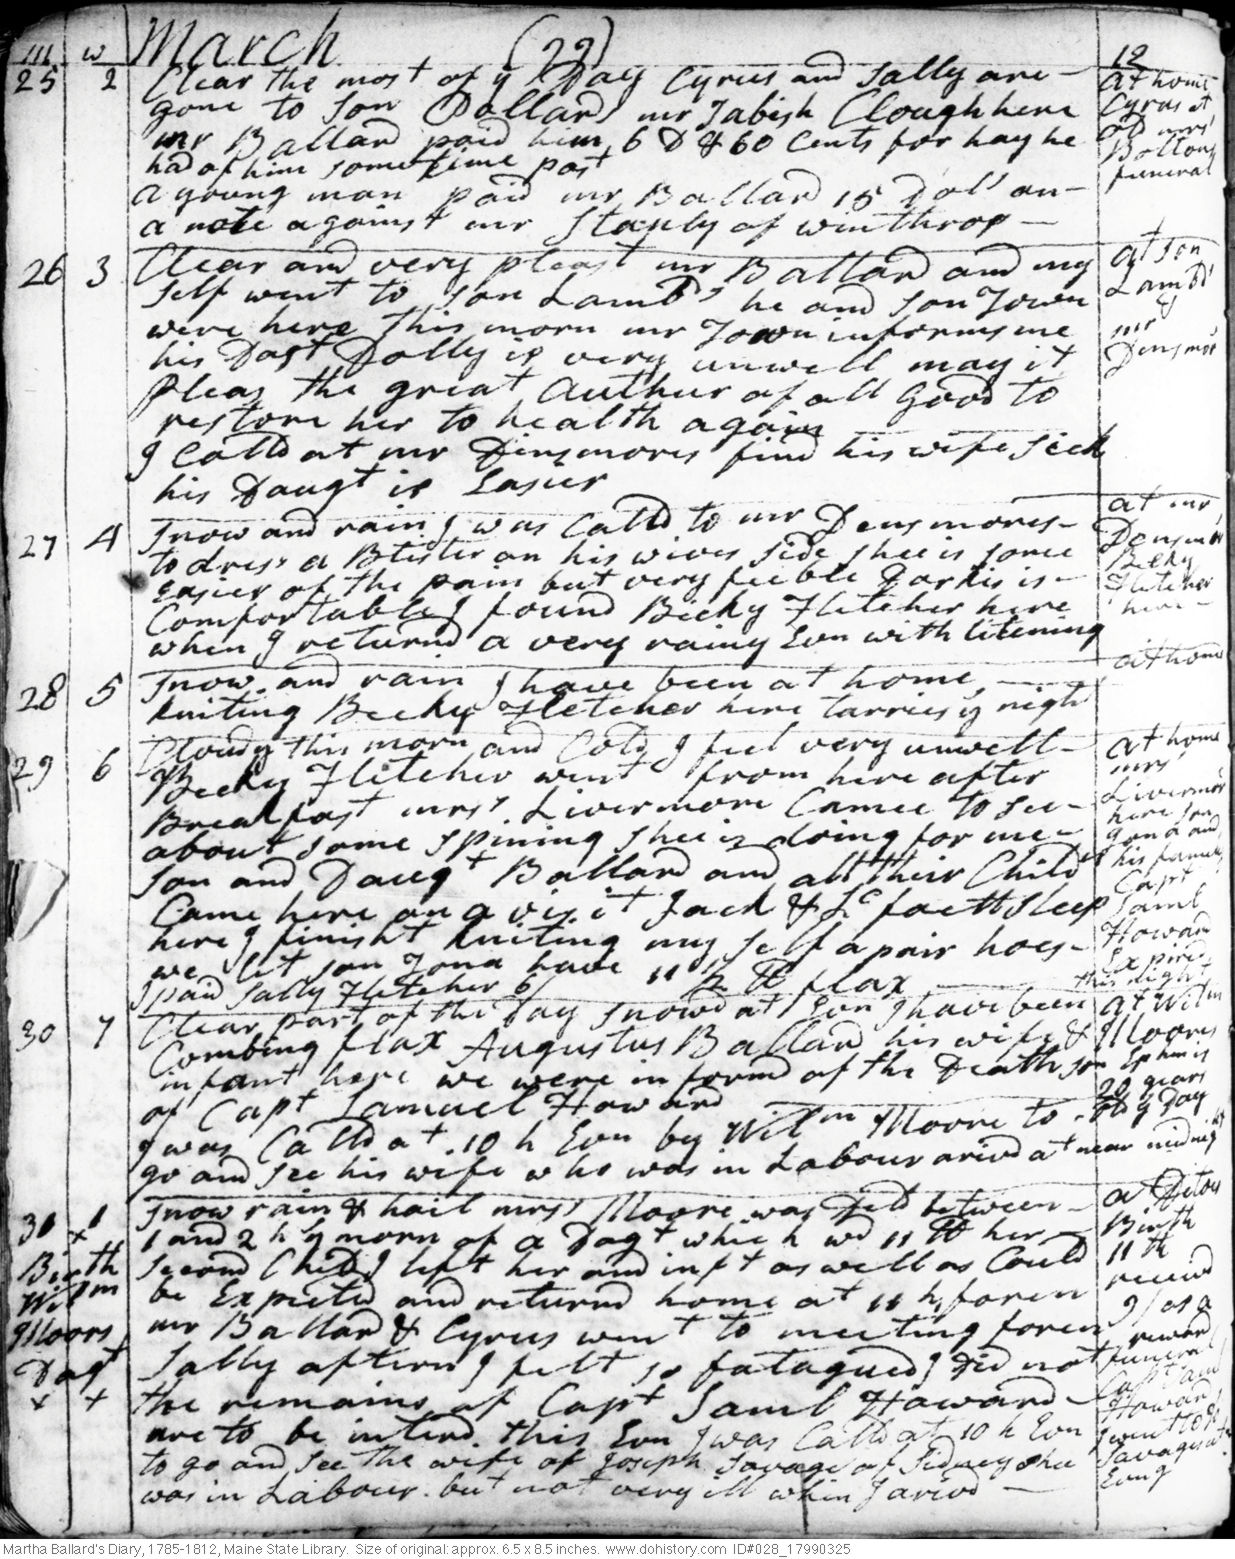 m w March (29) 12
25 2 Clear the most of ye Day Cyrus and Sally are
gone to Son Pollards mr Jabish Clough here
mr Ballard paid him 6 D & 60 Cents for hay he
had of him some time past
a young man paid mr Ballard 15 Dols on
a note against mr Stanly of winthrop
at home
Cyrus at
old mrs
Boltons
funeral
26 3 Clear and very pleast mr Ballard and my
self went to son Lambds he and son Town
were here This morn mr Town informs me
his Dagt Dolly is very unwell may it
Pleas the great Author of all Good to
restore her to health again
I Calld at mr Dinsmores find his wife sick
his Daugt is Easier
at son
Lambds
&
mr
Densmor
27 4 Snow and rain I was Calld to mr Densmores
to dress a Blister on his wives side shee is some
Easier of the pain but very feeble Dorkis is
Comfortable I found Becky Fletcher here
when I returnd a very rainy Evn with litening
at mr
Densmor
Becky
Fletcher
here
28 5 Snow and rain I have been at home
kniting Becky Fletcher here tarries ye night
at home
29 6 Cloudy this morn and Cold I feel very unwell
Becky Fletcher went from here after
Breakfast mrs Livermore Camee to see
about some spining shee is doing for me
son and Daugt Ballard and all their Childn
Came here on a visit Jack & Sc faett sleep
here I finisht kniting my self a pair hoes
we let son Jona have 11 lb flax
I paid Sally Fletcher 6/
at home
mrs
Livermor
here son
Jona and
his family
Capt
Saml
Howard
Expired
this night
30 7 Clear part of the Day snowd at Evn I have been
Combing flax Augustus Ballard his wife &
infant here we were informd of the Death
of Capt Samuel Howard
I was Calld at 10 h Evn by Wilm Moore to
go and see his wife who was in Labour arivd at near midnight
at Wilm
Moores
son Ephm is
20 years
old ys Day
31 1 Snow rain & hail mrs Moore was Deld between
1 and 2 h ys morn of a Dagt which wd 11 lb her
second Child I left her and inft as well as Could
be Expected and returnd home at 11 h foren
mr Ballard & Cyrus went to meeting foren
Sally aftern I felt so fatagued I did not
the remains of Capt Saml Howard
are to be interd this Evn I was Calld at 10 h Evn
to go and see the wife of Joseph Savage of Sidney shee
was in Labour but not very ill when I arivd
Birth
Wilm
Moors
Dagt
x x
at Ditos
Birth
11th
receivd
9/ as a
reward
funeral
Capt Saml
Howard
I went to Js
Savages at
Evng
Martha Ballard's Diary, 1785-1812, Maine State Library. Size of original: approx. 6.5 x 8.5 inches. www.dohistory.com ID#028_17990325